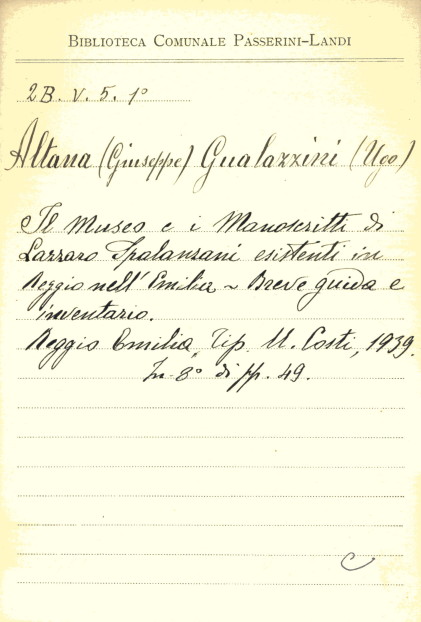 BIBLIOTECA COMUNALE PASSERINI-LANDI
2B. V. 5. 1º
Altana (Giuseppe) Gualazzini (Ugo)
Il Museo e i Manoscritti di
Lazzaro Spalanzani esistenti in
Reggio nell'Emilia ~ Breve guida e
inventario.
Reggio Emilia, Tip. U. Costi, 1939.
In-8º di pp. 49.
C